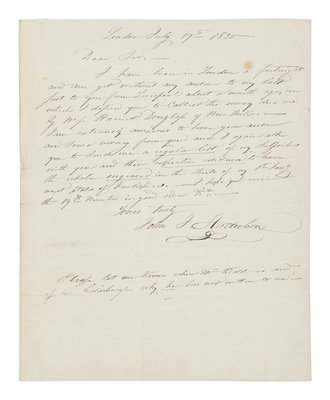 London July 19th 1830
Dear Sir.
I have been in London a fortnight
and am yet without any answer to my letter
sent to you from Liverpool about a month ago in
which I desired you to Collect the money due me
by Miss Harriet Douglas of New York
I am extremely anxious to have your
and Sums owing from you and I again ask
you to Send me a regular list of my Subscribers
with you and their respective residences to have
the whole engraved in the sheets of my
next plates of I hope you received
the 19th Number in good order &c.
Yours truly
John J. Audubon
Please let me know where Mr Kidd is now
if in Edinburgh why he has not written to me